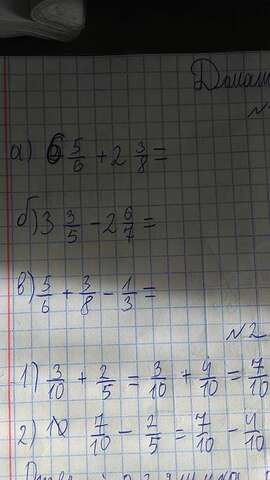 а) 6 5/6 + 2 3/8 =
б) 3 3/5 - 2 6/7 =
в) 5/6 + 3/8 - 1/3 =
№2
1) 3/10 + 2/5 = 3/10 + 4/10 = 7/10
2) 10 7/10 - 2/5 = 7/10 - 4/10